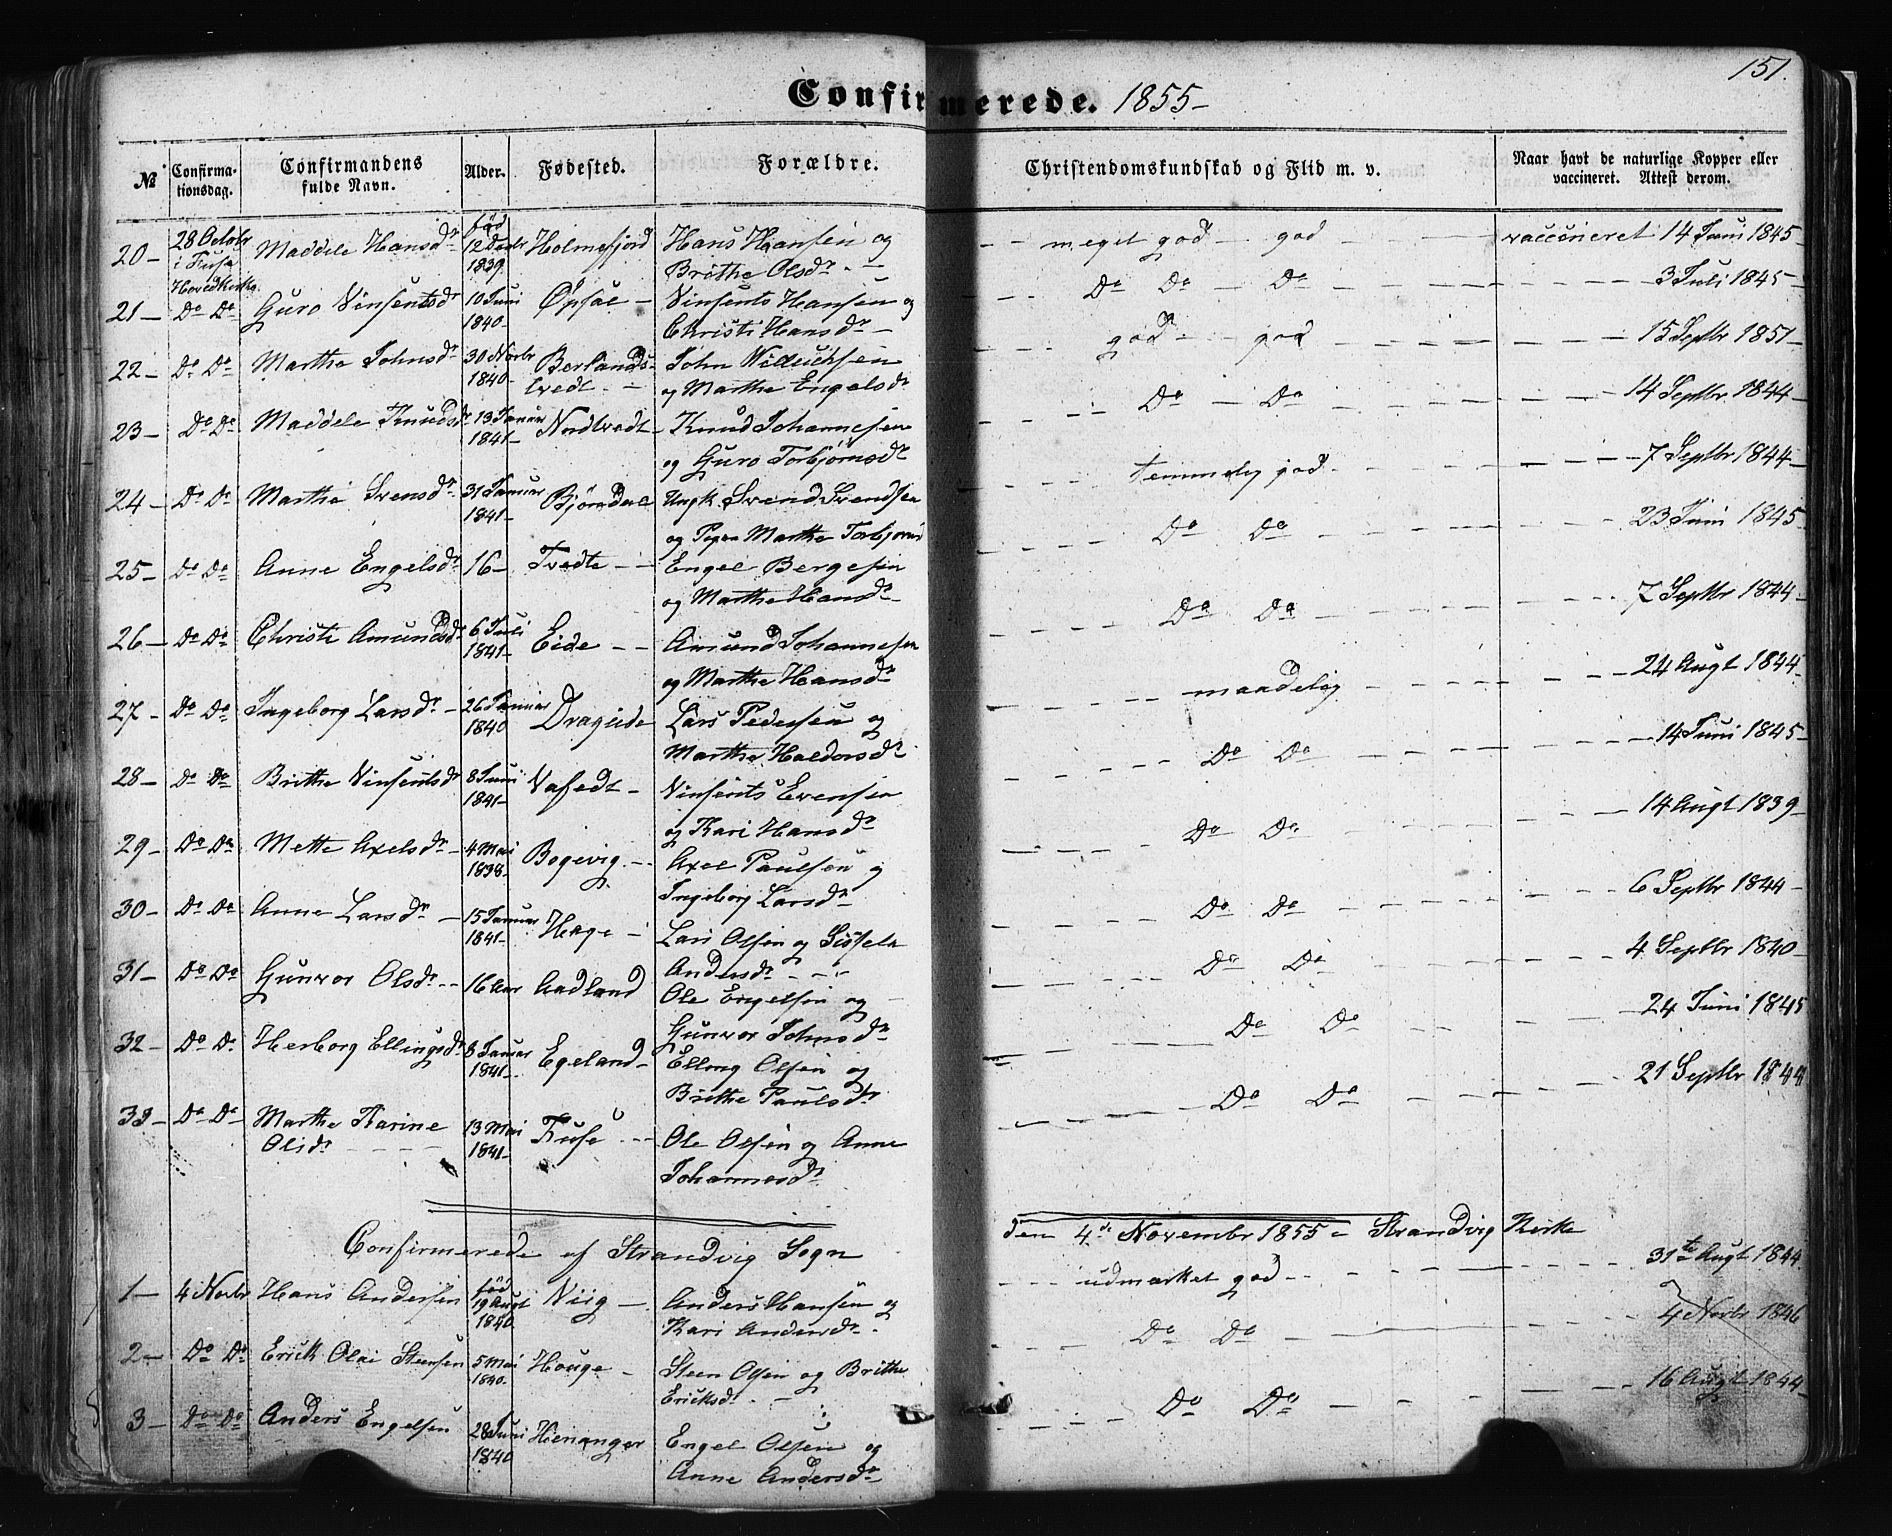 151.
Confirmerede. 1855-
№ Confirma-tionsdag. Confirmandens fulde Navn. Alder. Fødested. Forældre. Christendomskundskab og Flid m. v. Naar havt de naturlige Kopper eller vaccineret. Attest derom.
20- 28 Octobr i Fusa Hovedkirke Maddele Hansdr. fød 12 Decbr 1839. Holmefjord Hans Hansen og Brithe Olsdr. - - - meget god - god - - - vaccineret 14 Juni 1845-
21- Do Do Guro Vinsentsdr 10 Juni 1840- Opsal - Vinsents Hansen og Christi Hansdr - - - Do Do - Do - - - 3 Juli 1845-
22- Do Do Marthe Johnsdr 30 Novbr 1840- Berlands-tvedt - John Willichsen og Marthe Engelsdr - - god - god - - 15 Septbr 1851-
23- Do Do Maddele Knudsdr 13 Januar 1841- Nordtvedt - Knud Johannesen og Guro Torbjørnsdr - - Do - Do - - 14 Septbr 1844-
24- Do Do Marthe Svensdr. 31 Januar 1841- Bjørndal Ungk. Svend Svendsen og Pigen Marthe Torbjørns - - temmelig god - - 7 Septbr 1844-
25- Do Do Anne Engelsdr 16- Tvedte - - Engel Bergesen og Marthe Hansdr - - - Do Do - - 23 Juni 1845-
26- Do Do Christi Amundsdr 6 Juli 1841- Eide - - Amund Johannesen og Marthe Hansdr - - Do Do - - 7 Septbr 1844-
27- Do Do Ingeborg Larsdr. - 26 Januar 1840 Drageide Lars Pedersen og Marthe Haldorsdr. - - maadelig - - 24 Augt 1844-
28- Do Do Brithe Vinsentsdr 8 Juni 1841- Vafedt - Vinsents Evensen og Kari Hansdr - - Do Do - - 14 Juni 1845-
29- Do Do Mette Axelsdr. - 4 Mai 1838- Bogevig. - - Axel Paulsen og Ingeborg Larsdr. - - Do Do - - 14 Augt 1839-
30- Do Do Anne Larsdr. - 15 Januar 1841- Hage - Lars Olsen og Sissela Andersdr. - - - - Do Do - - 6 Septbr 1844-
31- Do Do Gunvor Olsdr. - - 16 Aar Aadland Ole Engelsen og Gunvor Johnsdr - - Do Do - - 4 Septbr 1840-
32- Do Do Herborg Ellingsdr 8 Januar 1841- Egeland - Elling Olsen og Brithe Paulsdr - - Do Do - - 24 Juni 1845
33- Do Do Marthe Karine Olsdr - - - - 13 Mai 1841- Fuse - - - Ole Olsen og Anne Johannesdr. - - Do Do - - 21 Septbr 1844
Confirmerede af Strandvig Sogn den 4de November 1855 i Strandvig Kirke
1- 4 Novbr Hans Andersen fød 19 Augt 1840 Viig - Anders Hansen og Kari Andersdr. - - - udmærket god - - 31te Augt 1844
2- Do Do Erick Olai Steensen 5 Mai 1840. Houge - Steen Olsen og Brithe Ericksdr. - Do Do - - 4 Novbr 1846
3- Do Do Anders Engelsen 28 Juni 1840 Hienanger Engel Olsen og Anne Andersdr - - Do Do - - 16 Augt 1844-